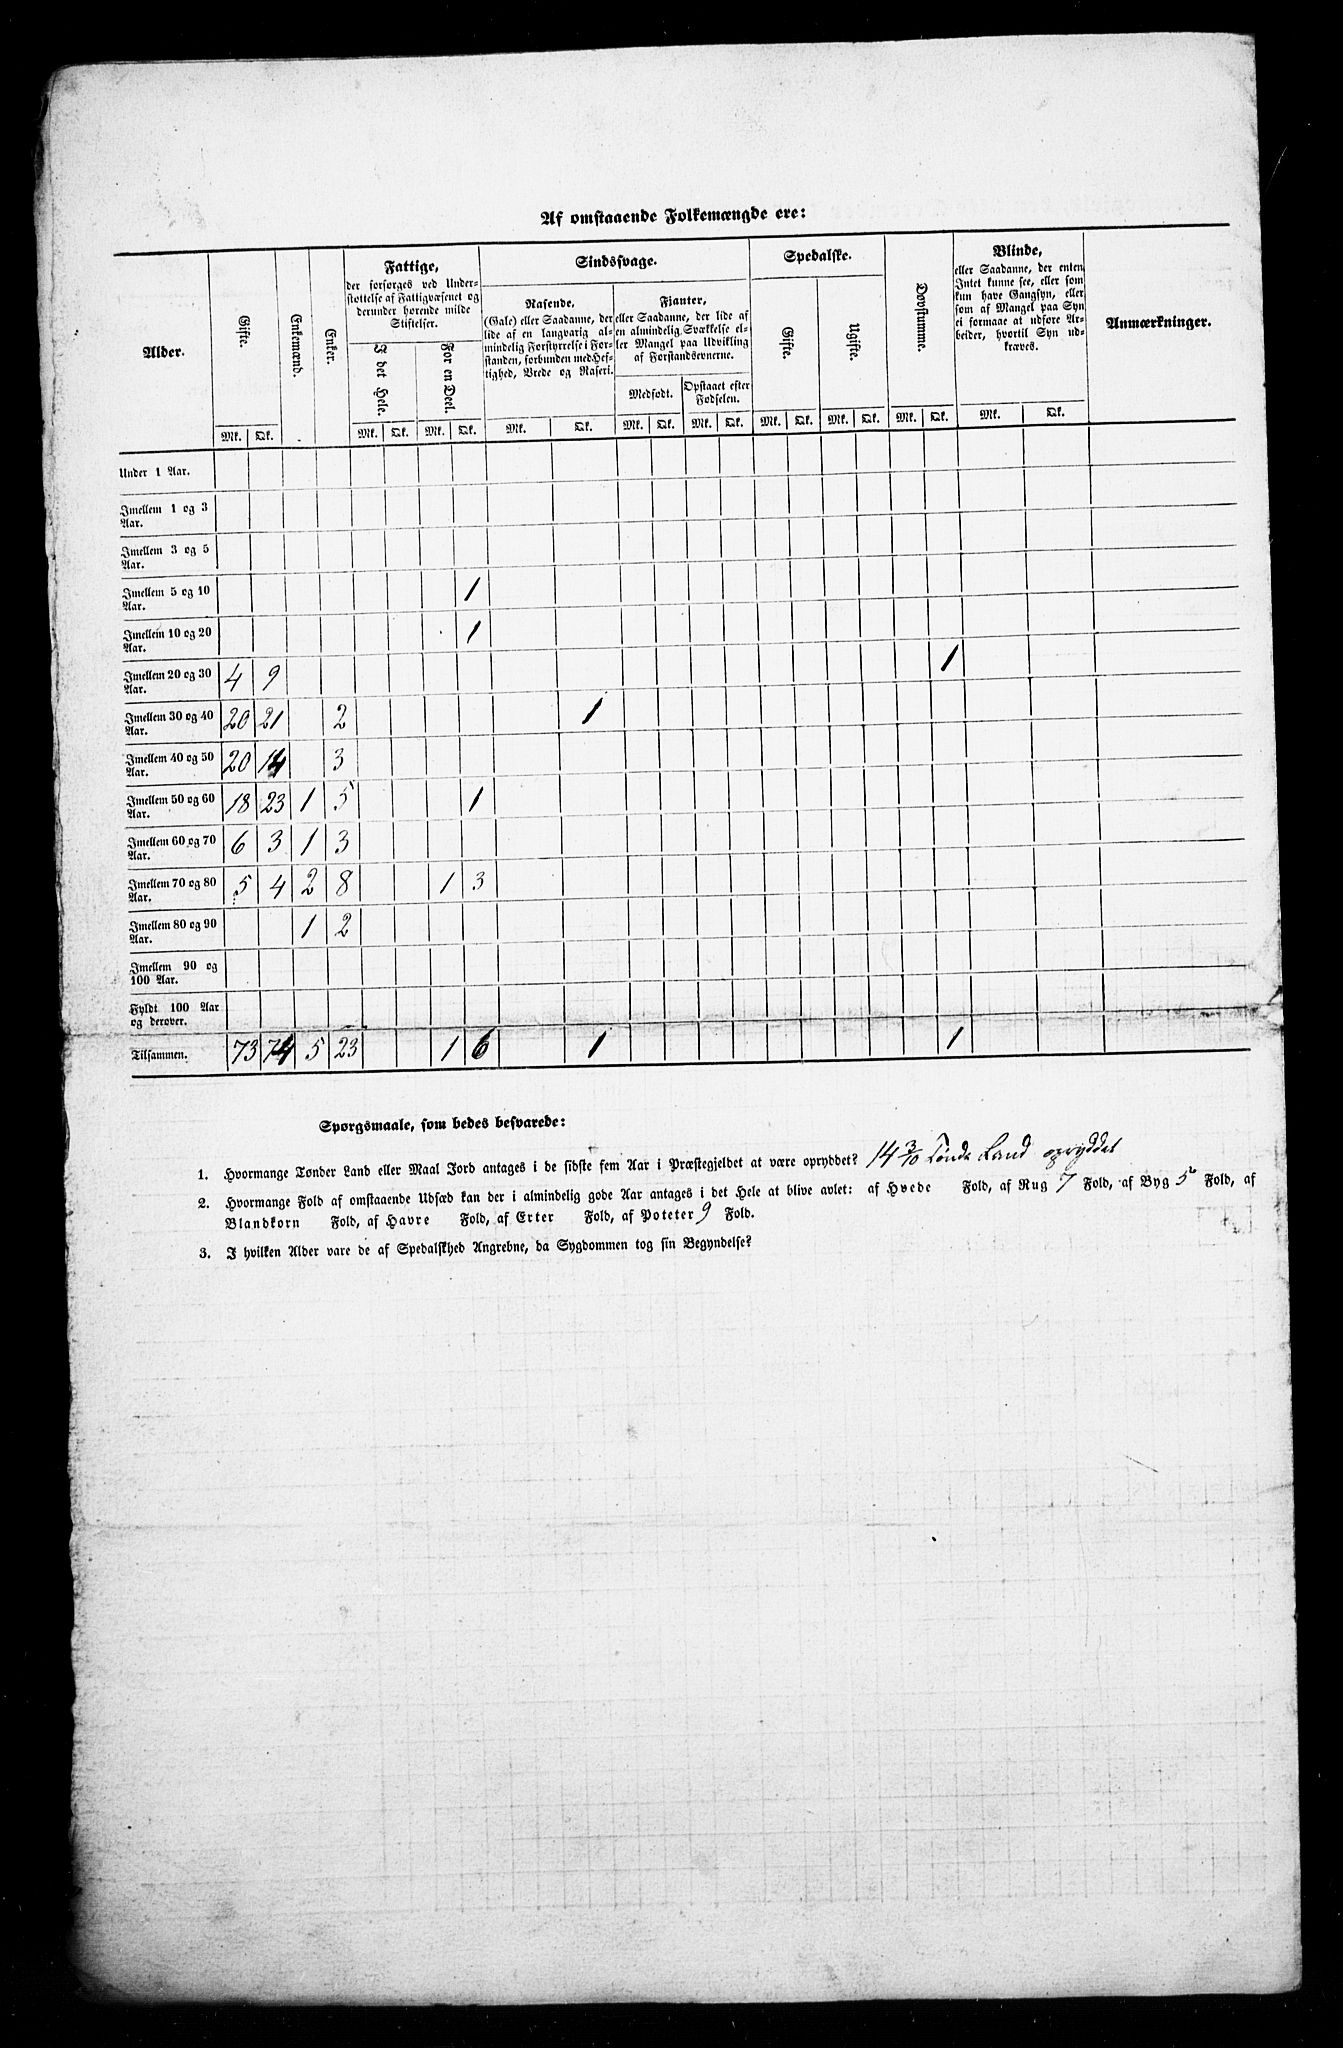 Af omstaaende Folkemængde ere:
Alder.
Gifte.
Enkemænd.
Enker.
Fattige,
der forsørges ved Under-
støttelse af Fattigvæsenet og
derunder hørende milde
Stiftelser.
I det Hele.
For en Deel.
Sindssvage.
Rasende,
(Gale) eller Saadanne, der
lide af en langvarig al-
mindelig Forstyrrelse i For-
standen, forbunden med Hef-
tighed, Vrede og Raseri.
Fianter,
eller Saadanne, der lide af
en almindelig Svækkelse el-
ler Mangel paa Udvikling
af Forstandsevnerne.
Medfødt.
Opstaaet efter
Fødselen.
Spedalske.
Gifte.
Ugifte.
Døvstumme.
Blinde,
eller Saadanne, der enten
Intet kunne see, eller som
kun have Gangsyn, eller
som af Mangel paa Syn
ei formaae at udføre Ar-
beider, hvortil Syn ud-
kræves.
Anmærkninger.
Mk. Qk. Mk. Qk. Mk. Qk. Mk. Qk. Mk. Qk. Mk. Qk. Mk. Qk. Mk. Qk. Mk. Qk. Mk. Qk.
Under 1 Aar.
Imellem 1 og 3
Aar.
Imellem 3 og 5
Aar.
Imellem 5 og 10 1
Aar.
Imellem 10 og 20 1
Aar.
Imellem 20 og 30 4 9 1
Aar.
Imellem 30 og 40 20 21 2 1
Aar.
Imellem 40 og 50 20 14 3
Aar.
Imellem 50 og 60 18 23 1 5 1
Aar.
Imellem 60 og 70 6 3 1 3
Aar.
Imellem 70 og 80 5 4 2 8 1 3
Aar.
Imellem 80 og 90 1 2
Aar.
Imellem 90 og
100 Aar.
Fyldt 100 Aar
og derover.
Tilsammen. 73 74 5 23 1 6 1 1
Spørgsmaale, som bedes besvarede:
1. Hvormange Tønder Land eller Maal Jord antages i de sidste fem Aar i Præstegjeldet at være opryddet? 14 3/10 Tønde Land opryddet
2. Hvormange Fold af omstaaende Udsæd kan der i almindelig gode Aar antages i det Hele at blive avlet: af Hvede Fold, af Rug 7 Fold, af Byg 5 Fold, af
Blandkorn Fold, af Havre Fold, af Erter Fold, af Poteter 9 Fold.
3. I hvilken Alder vare de af Spedalskhed Angrebne, da Sygdommen tog sin Begyndelse?